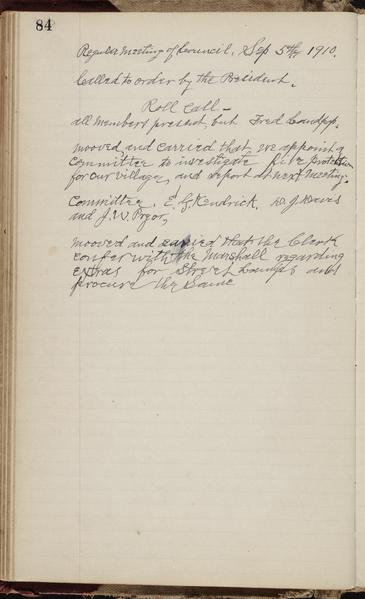 84
Regular Meeting of Council, Sep 5th 1910.
Called to order by the President.
Roll Call -
all members present but Fred
mooved and carried that we appoint a
committee to investigate fire protection
for our village, and report at next meeting.
Committee, E. G. Kendrick, D. J. Davis
and J. W. Pryor,
mooved and carried that the Clerk
confer with the Marshall regarding
extras for Street Lamps and
procure the Same